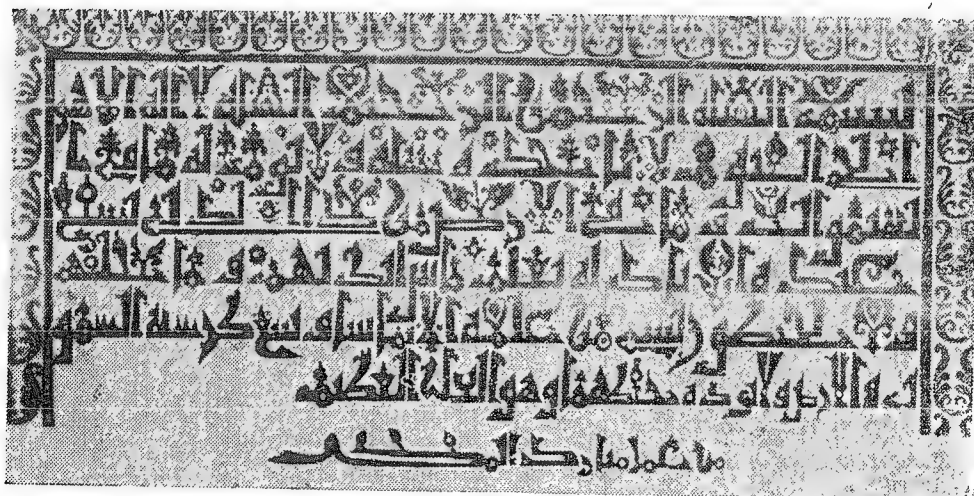 بسم الله الرحمن الرحيم الله لا اله الا
الحى القيوم لا تاخذه سنة ولا نوم له ما فى ا
لسموات وما فى الارض من ذا الذى يشفع
عنده الا باذنه يعلم ما بين ايديهم وما خلفهم
ولا يحيطون بشى من علمه الا بما شا وسع كرسيه السمو
ات والارض ولا يوده حفظهما وهو العلى العظيم
مما عمل مبارك المكى